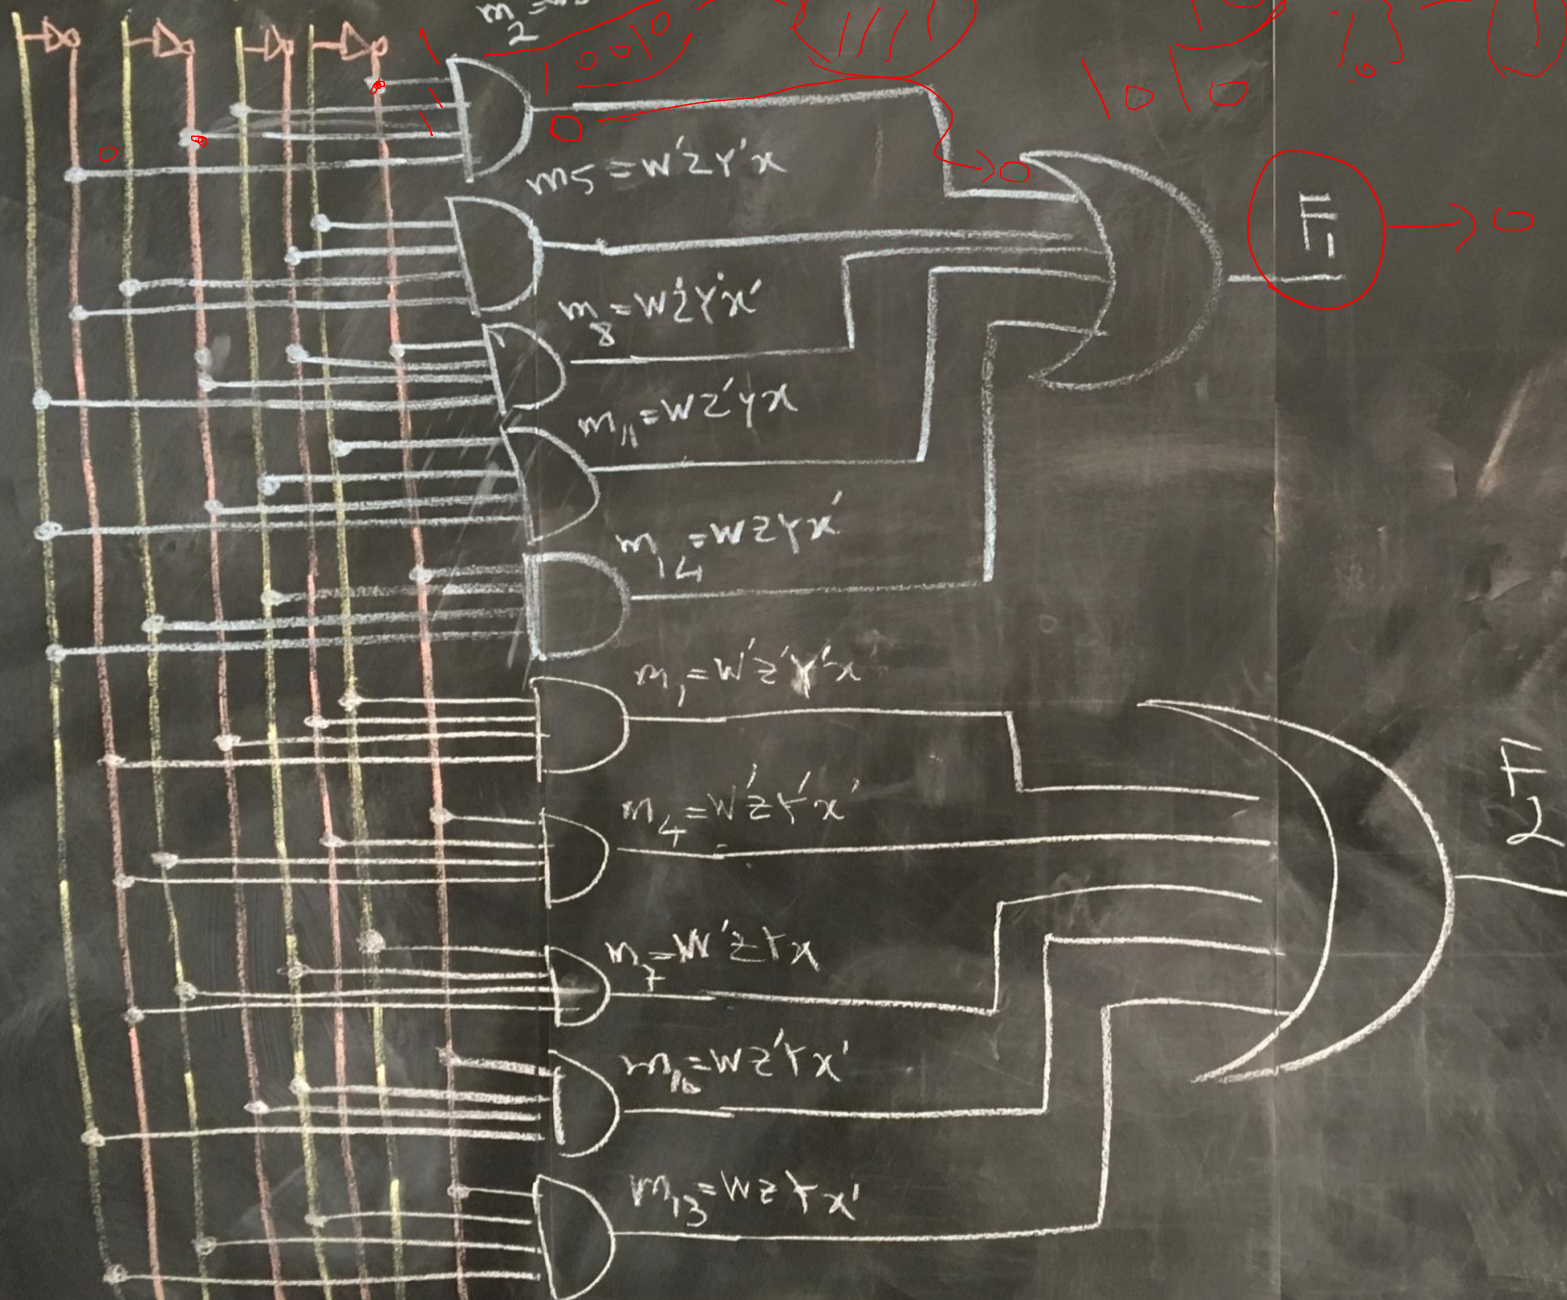 m2=
1 0010
1111
1010
1
1
1
0
0
0
m5 = w'zY'x
F1 → 0
m8 = wz'Y'x'
m11 = wz'yx
m14 = wzYx'
m1 = w'z'Y'x
m4 = w'zY'x'
F2
m7 = w'zYx
m10 = wz'Yx'
m13 = wzYx'